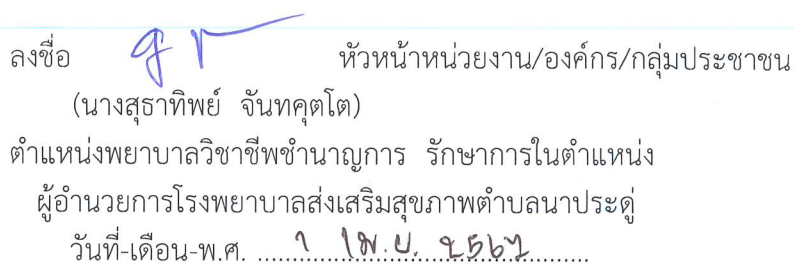 ลงชื่อ หัวหน้าหน่วยงาน/องค์กร/กลุ่มประชาชน
(นางสุธาทิพย์ จันทคุตโต)
ตำแหน่งพยาบาลวิชาชีพชำนาญการ รักษาการในตำแหน่ง
ผู้อำนวยการโรงพยาบาลส่งเสริมสุขภาพตำบลนาประดู่
วันที่-เดือน-พ.ศ. ๑ เม.ย. ๒๕๖๗